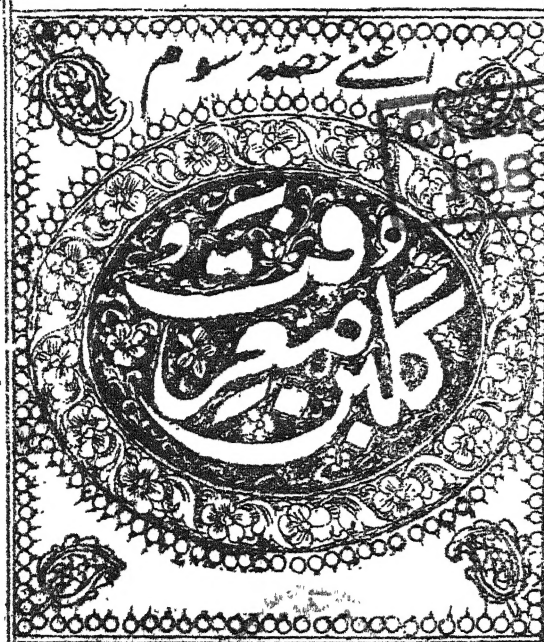 حصہ سوم
گلبن معرفت
198